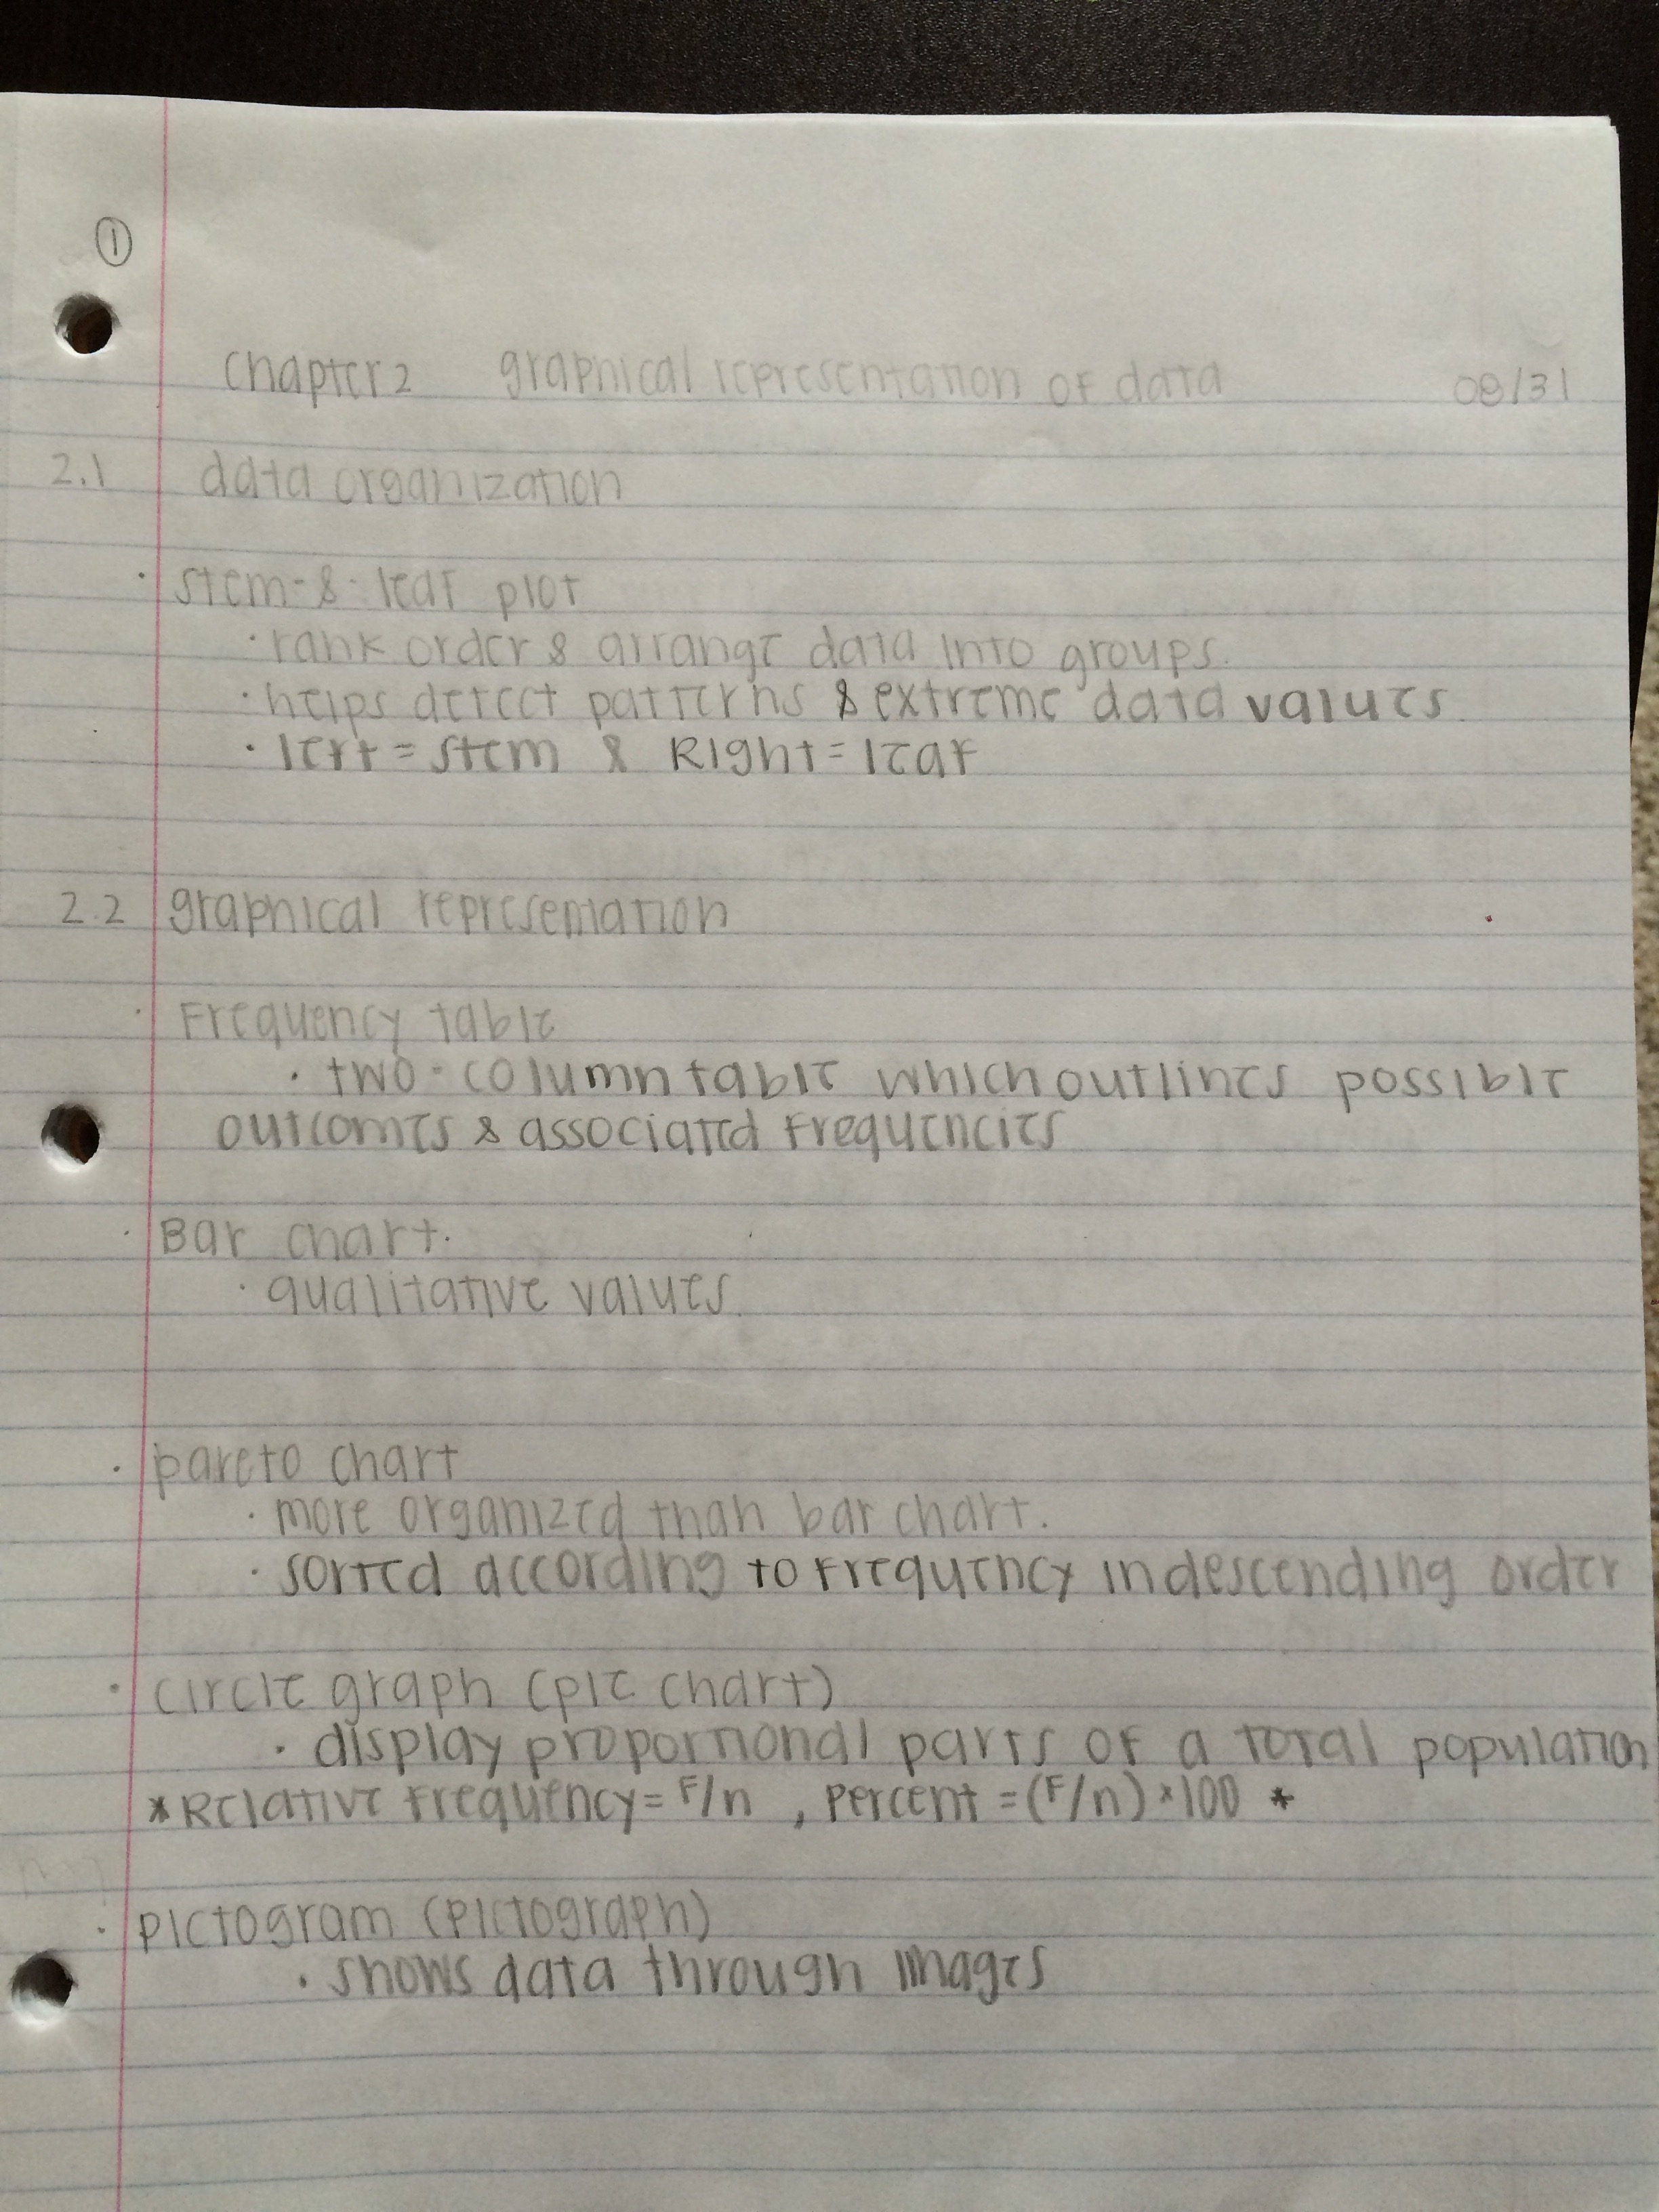 ①
Chapter 2 graphical representation of data 08/31
2.1 data organization
· stem-&-leaf plot
· rank order & arrange data into groups.
· helps detect patterns & extreme data values.
· left = stem & Right = leaf
2.2 graphical representation
· Frequency table
· two-column table which outlines possible
outcomes & associated frequencies
· Bar chart.
· qualitative values.
· pareto chart
· more organized than bar chart.
· sorted according to frequency in descending order
· circle graph (pie chart)
· display proportional parts of a total population
* Relative frequency = F/n , Percent = (F/n) × 100 *
· pictogram (pictograph)
· shows data through images